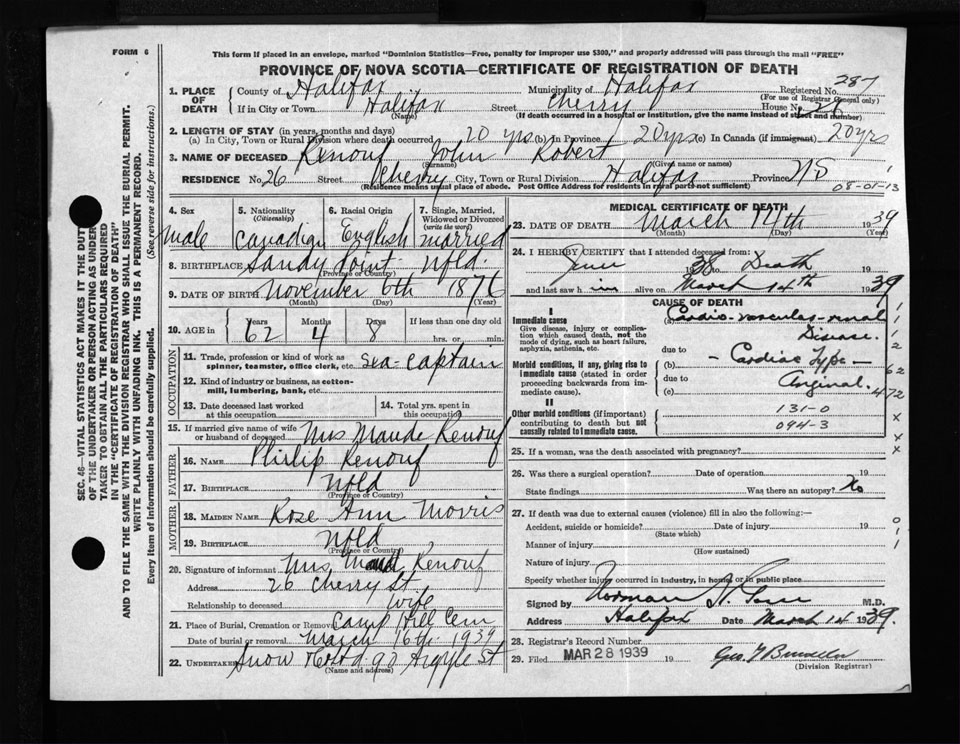 FORM 6
This form if placed in an envelope, marked "Dominion Statistics—Free, penalty for improper use $300," and properly addressed will pass through the mail "FREE"
PROVINCE OF NOVA SCOTIA—CERTIFICATE OF REGISTRATION OF DEATH
1. PLACE OF DEATH County of Halifax Municipality of Halifax Registered No. 287
(For use of Registrar General only)
If in City or Town Halifax Street Cherry House No. 26
(Name) (If death occurred in a hospital or institution, give the name instead of street and number)
2. LENGTH OF STAY (in years, months and days)
(a) In City, Town or Rural Division where death occurred 20 yrs (b) In Province 20 yrs (c) In Canada (if immigrant) 20 yrs
3. NAME OF DECEASED Renouf John Robert
(Surname) (Given name or names)
RESIDENCE No. 26 Street Cherry City, Town or Rural Division Halifax Province NS
(Residence means usual place of abode. Post Office Address for residents in rural parts not sufficient)
08-01-13
4. Sex 5. Nationality (Citizenship) 6. Racial Origin 7. Single, Married, Widowed or Divorced (write the word)
Male Canadian English Married
8. BIRTHPLACE Sandy Point Nfld.
(Province or Country)
9. DATE OF BIRTH November 6th 1876
(Month) (Day) (Year)
10. AGE in Years Months Days If less than one day old
62 4 8 hrs. or min.
OCCUPATION
11. Trade, profession or kind of work as spinner, teamster, office clerk, etc. Sea-Captain
12. Kind of industry or business, as cotton-mill, lumbering, bank, etc.
13. Date deceased last worked at this occupation 14. Total yrs. spent in this occupation
15. If married give name of wife or husband of deceased Mrs Maude Renouf
FATHER
16. NAME Philip Renouf
17. BIRTHPLACE Nfld
(Province or Country)
MOTHER
18. MAIDEN NAME Rose Ann Morris
19. BIRTHPLACE Nfld
(Province or Country)
20. Signature of informant Mrs. Maud Renouf
Address 26 Cherry St.
Relationship to deceased wife
21. Place of Burial, Cremation or Removal Camp Hill Cem
Date of burial or removal March 16th 1939
22. UNDERTAKER Snow 90 Argyle St
(Name and address)
MEDICAL CERTIFICATE OF DEATH
23. DATE OF DEATH March 14th 1939
(Month) (Day) (Year)
24. I HEREBY CERTIFY that I attended deceased from:
June 38 Death 19
and last saw him alive on March 14th 1939
CAUSE OF DEATH
I
Immediate cause
Give disease, injury or complication which caused death, not the mode of dying, such as heart failure, asphyxia, asthenia, etc.
(a) Cardio-vascular-renal Disease.
due to
Morbid conditions, if any, giving rise to immediate cause (stated in order proceeding backwards from immediate cause).
(b) — Cardiac Type —
due to
(c) Anginal.
II
Other morbid conditions (if important) contributing to death but not causally related to immediate cause.
131-0
094-3
25. If a woman, was the death associated with pregnancy?
26. Was there a surgical operation? Date of operation 19
State findings Was there an autopsy? No
27. If death was due to external causes (violence) fill in also the following:—
Accident, suicide or homicide? Date of injury 19
(State which)
Manner of injury
(How sustained)
Nature of injury
Specify whether injury occurred in industry, in home or in public place
Signed by Norman M.D.
Address Halifax Date March 14 1939.
28. Registrar's Record Number
29. Filed MAR 28 1939 19
(Division Registrar)
SEC. 46—VITAL STATISTICS ACT MAKES IT THE DUTY OF THE UNDERTAKER OR PERSON ACTING AS UNDERTAKER TO OBTAIN ALL THE PARTICULARS REQUIRED IN THE "CERTIFICATE OF REGISTRATION OF DEATH" AND TO FILE THE SAME WITH THE DIVISION REGISTRAR WHO SHALL ISSUE THE BURIAL PERMIT.
WRITE PLAINLY WITH UNFADING INK. THIS IS A PERMANENT RECORD.
Every item of information should be carefully supplied. (See reverse side for instructions.)